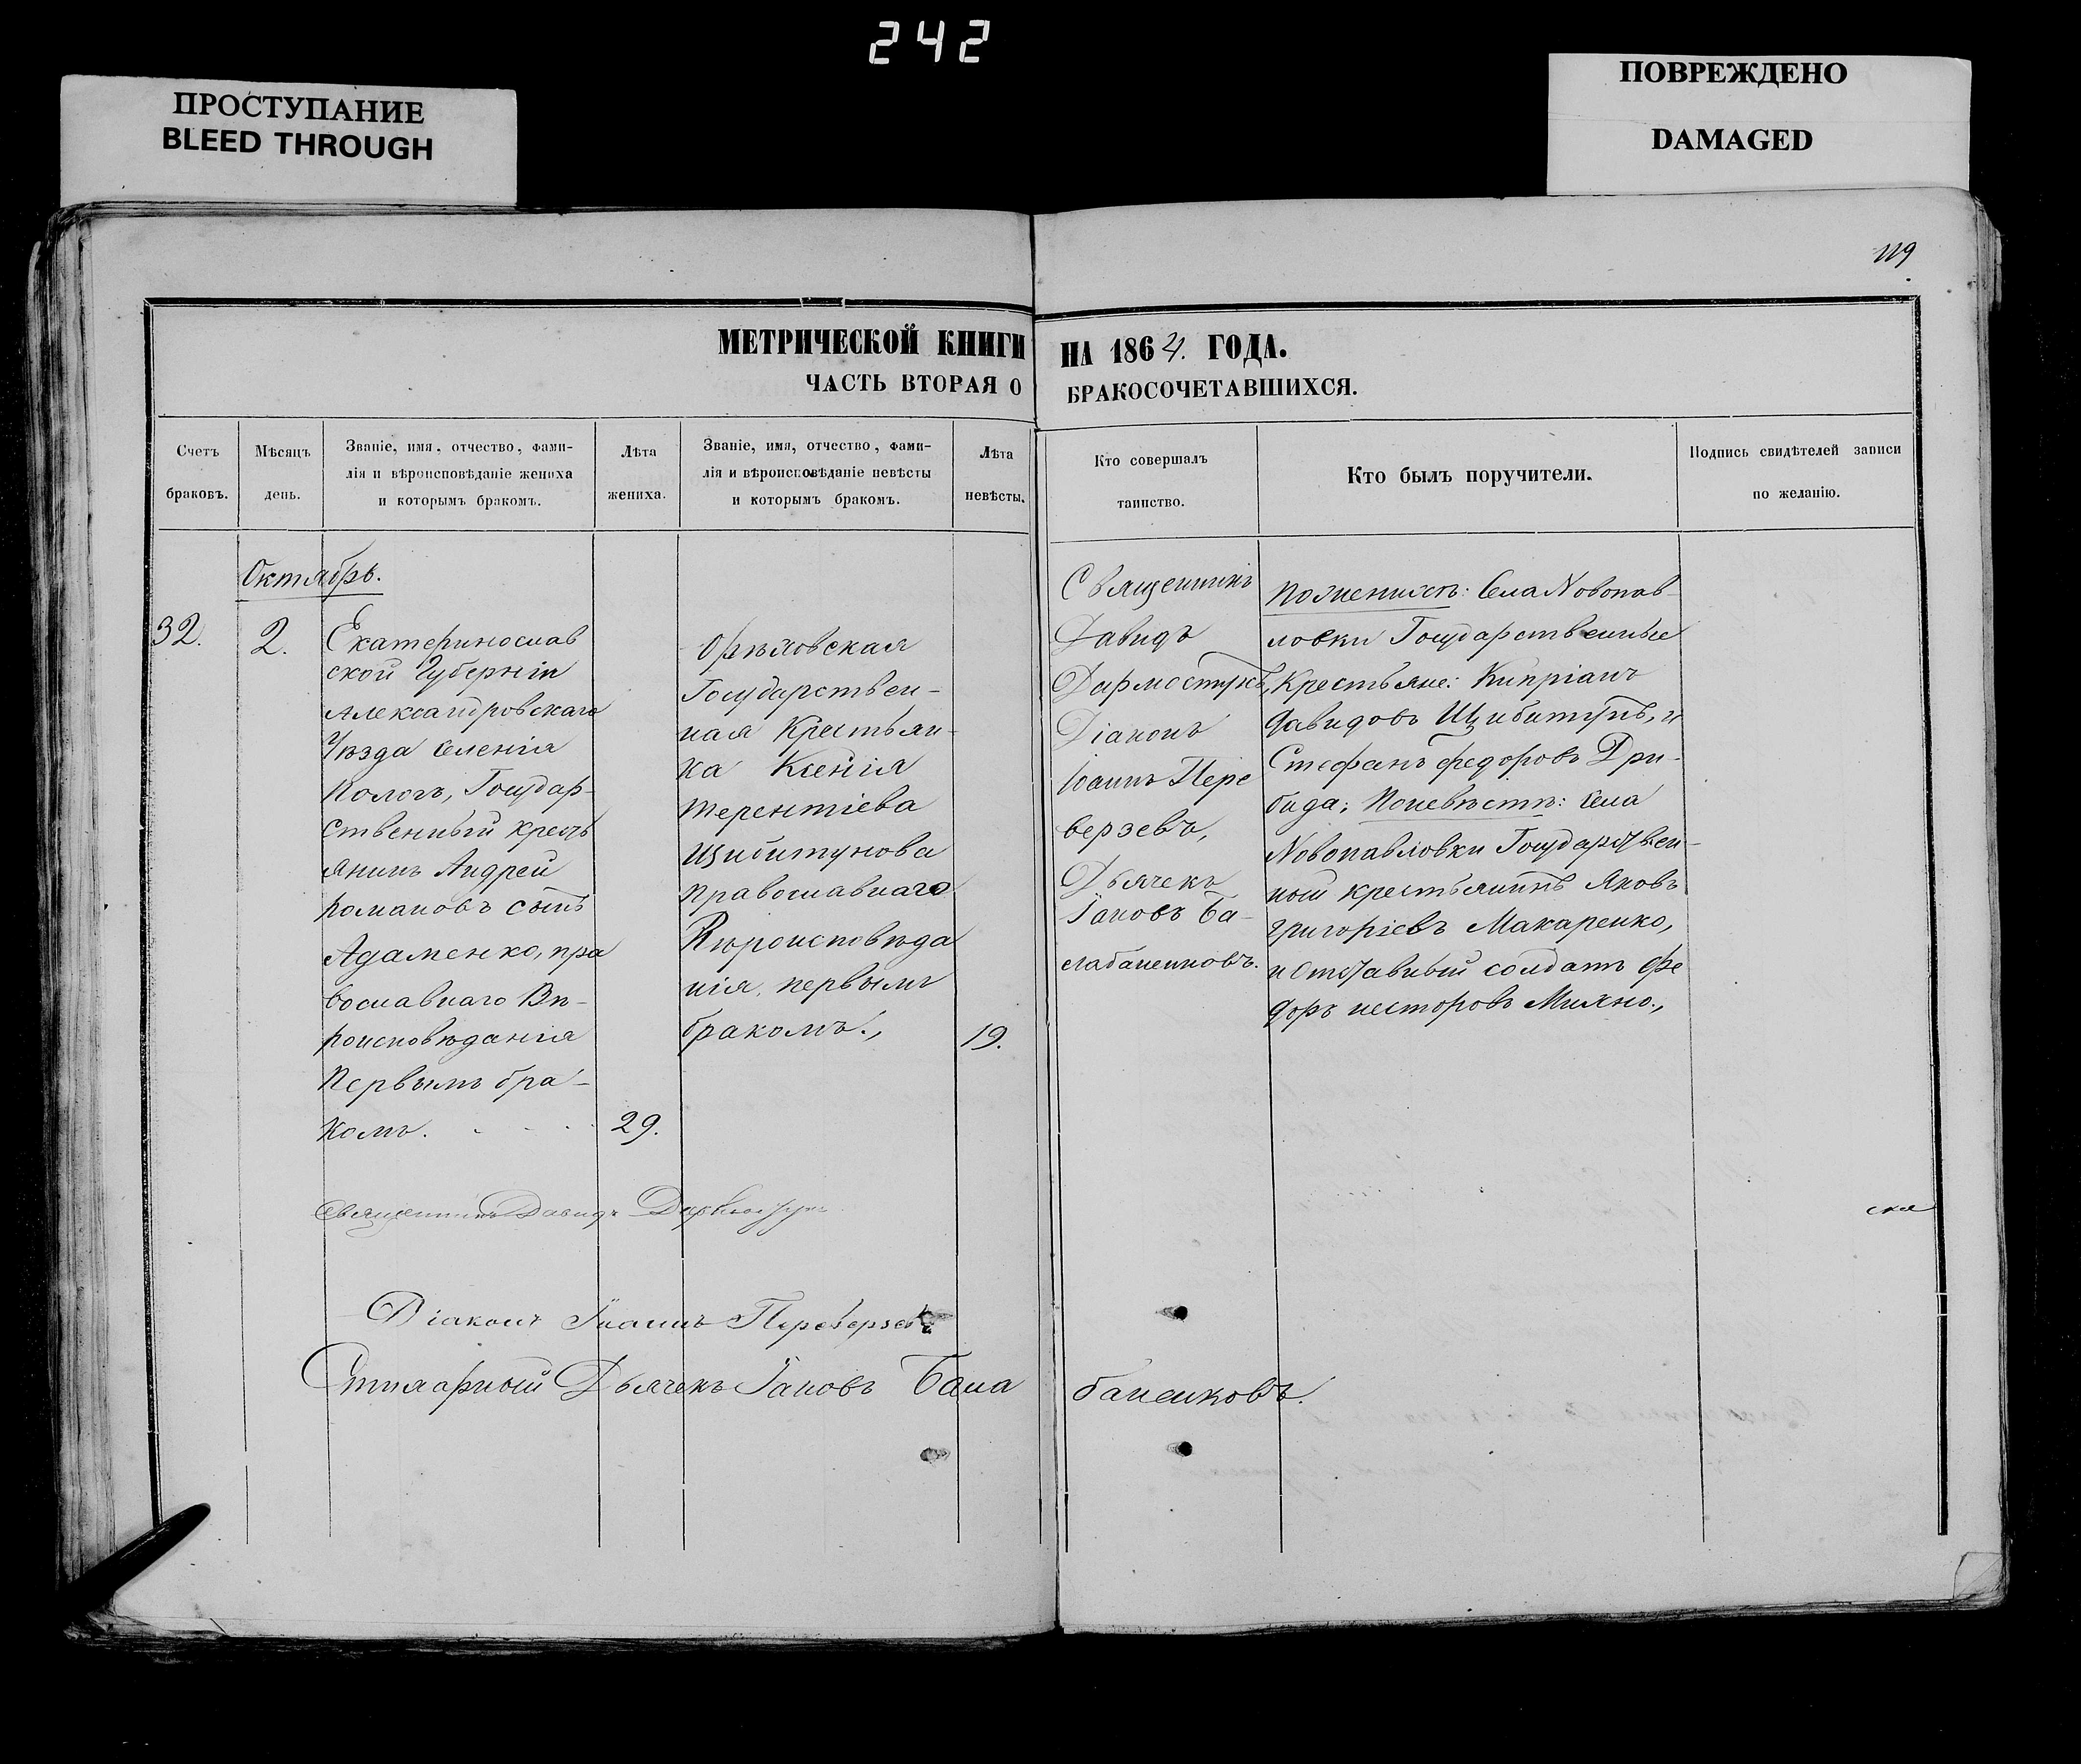 242
ПРОСТУПАНИЕ
BLEED THROUGH
ПОВРЕЖДЕНО
DAMAGED
119
МЕТРИЧЕСКОЙ КНИГИ НА 1864. ГОДА.
ЧАСТЬ ВТОРАЯ О БРАКОСОЧЕТАВШИХСЯ.
Счетъ
браковъ.
Мѣсяцъ
день.
Званіе, имя, отчество, фами-
лія и вѣроисповѣданіе жениха
и которымъ бракомъ.
Лѣта
жениха.
Званіе, имя, отчество, фами-
лія и вѣроисповѣданіе невѣсты
и которымъ бракомъ.
Лѣта
невѣсты.
Кто совершалъ
таинство.
Кто былъ поручители.
Подпись свидѣтелей записи
по желанію.
Октябрь.
32.
2.
Екатеринослав
ской Губерніи
Александровскаго
Уѣзда Селенія
Пологъ, Государ-
ственный кресть
янинъ Андрей
Романовъ сынъ
Адаменко, пра
вославнаго Вѣ-
роисповѣданія
Первымъ бра-
комъ.
29.
Орѣховская
Государствен-
ная Крестьян-
ка Ксенія
Терентіева
Щибитунова
православнаго
Вѣроисповѣда
нія, первымъ
бракомъ.,
19.
Священникъ
Давидъ
Дармостукъ,
Діаконъ
Іоаннъ Пере
верзевъ,
Дьячекъ
Іаковъ Ба-
лабаненковъ.
Поженихѣ: Села Новопав
ловки Государственные
Крестьяне: Кипріанъ
Давидовъ Щибитунъ, и
Стефанъ Федоровъ Дри-
бида; Поневѣстѣ: Села
Новопавловки Государствен-
ный крестьянинъ Яковъ
Григоріевъ Макаренко,
и Отставный солдатъ Фе
доръ Несторовъ Михно.,
Священникъ Давидъ
ская
Діаконъ Іоаннъ Переверзевъ
Дьячекъ Іаковъ Бала
баненковъ.